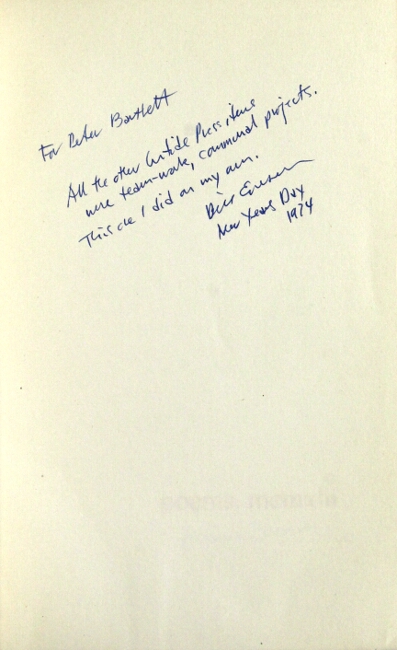 For Peter Bartlett
All the other Untide Press items
were team-work, communal projects.
This one I did on my own.
Bill Everson
New Years Day
1974